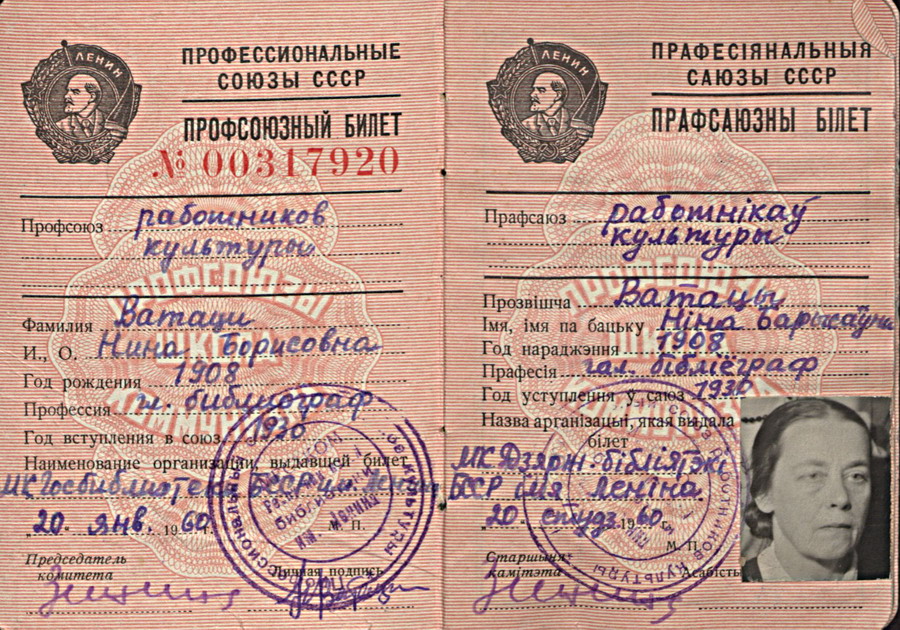 ЛЕНИН
ПРОФЕССИОНАЛЬНЫЕ
СОЮЗЫ СССР
ПРОФСОЮЗНЫЙ БИЛЕТ
№ 00317920
Профсоюз работников
культуры
Фамилия Ватаци
И., О. Нина Борисовна
Год рождения 1908
Профессия гл. библиограф
Год вступления в союз 1930
Наименование организации, выдавшей билет
МК Госбиблиотеки БССР им. Ленина
„20„ янв. 1960
М. П.
Председатель
комитета
Личная подпись
ЛЕНИН
ПРАФЕСІЯНАЛЬНЫЯ
САЮЗЫ СССР
ПРАФСАЮЗНЫ БІЛЕТ
Прафсаюз работнікаў
культуры
Прозвішча Ватацы
Імя, імя па бацьку Ніна Барысаўна
Год нараджэння 1908
Прафесія гал. бібліёграф
Год уступлення ў саюз 1930
Назва арганізацыі, якая выдала
білет
МК Дзярж. бібліятэкі
БССР імя Леніна
20 студз. 1960
М. П.
Старшыня
камітэта
Асабісты